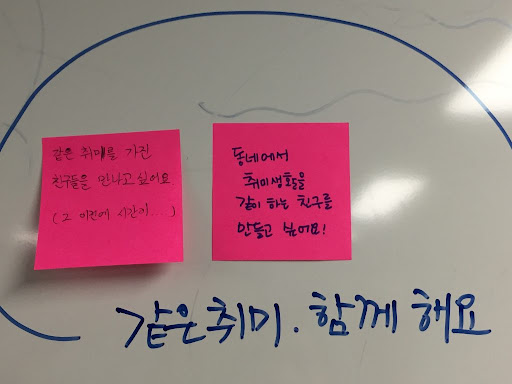 같은 취미를 가진
친구들을 만나고 싶어요.
(그 이전에 시간이...)
동네에서
취미생활을
같이 하는 친구를
만들고 싶어요!
같은 취미. 함께 해요